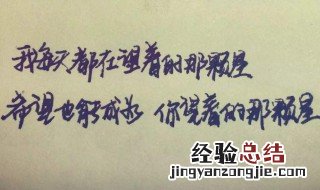 我每天都在望着的那颗星
希望也能成为 你望着的那颗星
经验总结
www.jingyanzongjie.com